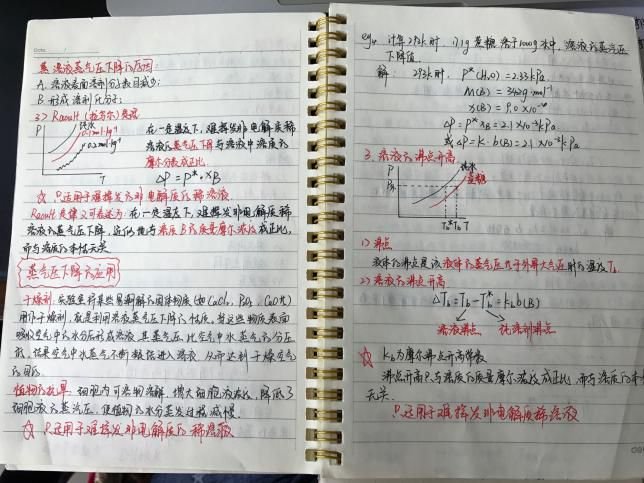 Date. /
蒸溶液蒸气压下降的原因:
A. 溶液表面溶剂分子数目减少;
B 形成溶剂化分子;
3) Raoult (拉乌尔) 定律
P 纯水
0.1mol·kg⁻¹
0.2mol·kg⁻¹
T
在一定温度下, 难挥发非电解质稀
溶液的蒸气压下降与溶液中溶质的
摩尔分数成正比
ΔP = P*·xB
☆ 只适用于难挥发的非电解质的稀溶液
Raoult定律又可表述为: 在一定温度下, 难挥发非电解质稀
溶液的蒸气压下降, 近似地与溶质B的质量摩尔浓度成正比,
而与溶质的本性无关
蒸气压下降的应用
干燥剂: 实验室将某些易潮解的固体物质(如CaCl₂, P₂O₅
用作干燥剂, 就是利用溶液蒸气压下降的性质, 当这些物质表面
吸收空气中的水分后形成溶液, 其蒸气压比空气中水蒸气的分压
低, 结果空气中水蒸气不断地进入溶液, 从而达到干燥空气
的目的.
植物的抗旱: 细胞内可溶物溶解, 增大细胞液浓度, 降低了
细胞液的蒸气压, 使植物的水分蒸发过程减慢.
☆ 只适用于难挥发非电解质的稀溶液
eg. 计算293k时, 17.1g 蔗糖溶于1000g水中, 溶液的蒸气压
下降值.
解: 293k时, P*(H₂O) = 2.33kPa
M(B) = 342g·mol⁻¹
x(B) = 9.0×10⁻⁴
ΔP = P*xB = 2.1×10⁻³kPa
或 ΔP = k·b(B) = 2.1×10⁻³kPa
3. 溶液的沸点升高
P 纯水
Tb* Tb T
1) 沸点
液体的沸点是该液体的蒸气压等于外界大气压时的温度Tb
2) 溶液的沸点升高
ΔTb = Tb - Tb* = kb b(B)
溶液沸点 纯溶剂沸点
☆ kb为摩尔沸点升高常数
沸点升高只与溶质的质量摩尔浓度成正比, 而与溶质的本性
无关.
只适用于难挥发非电解质稀溶液